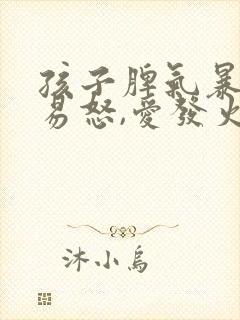 孩子脾氣暴
易怒,愛發火
沐小烏